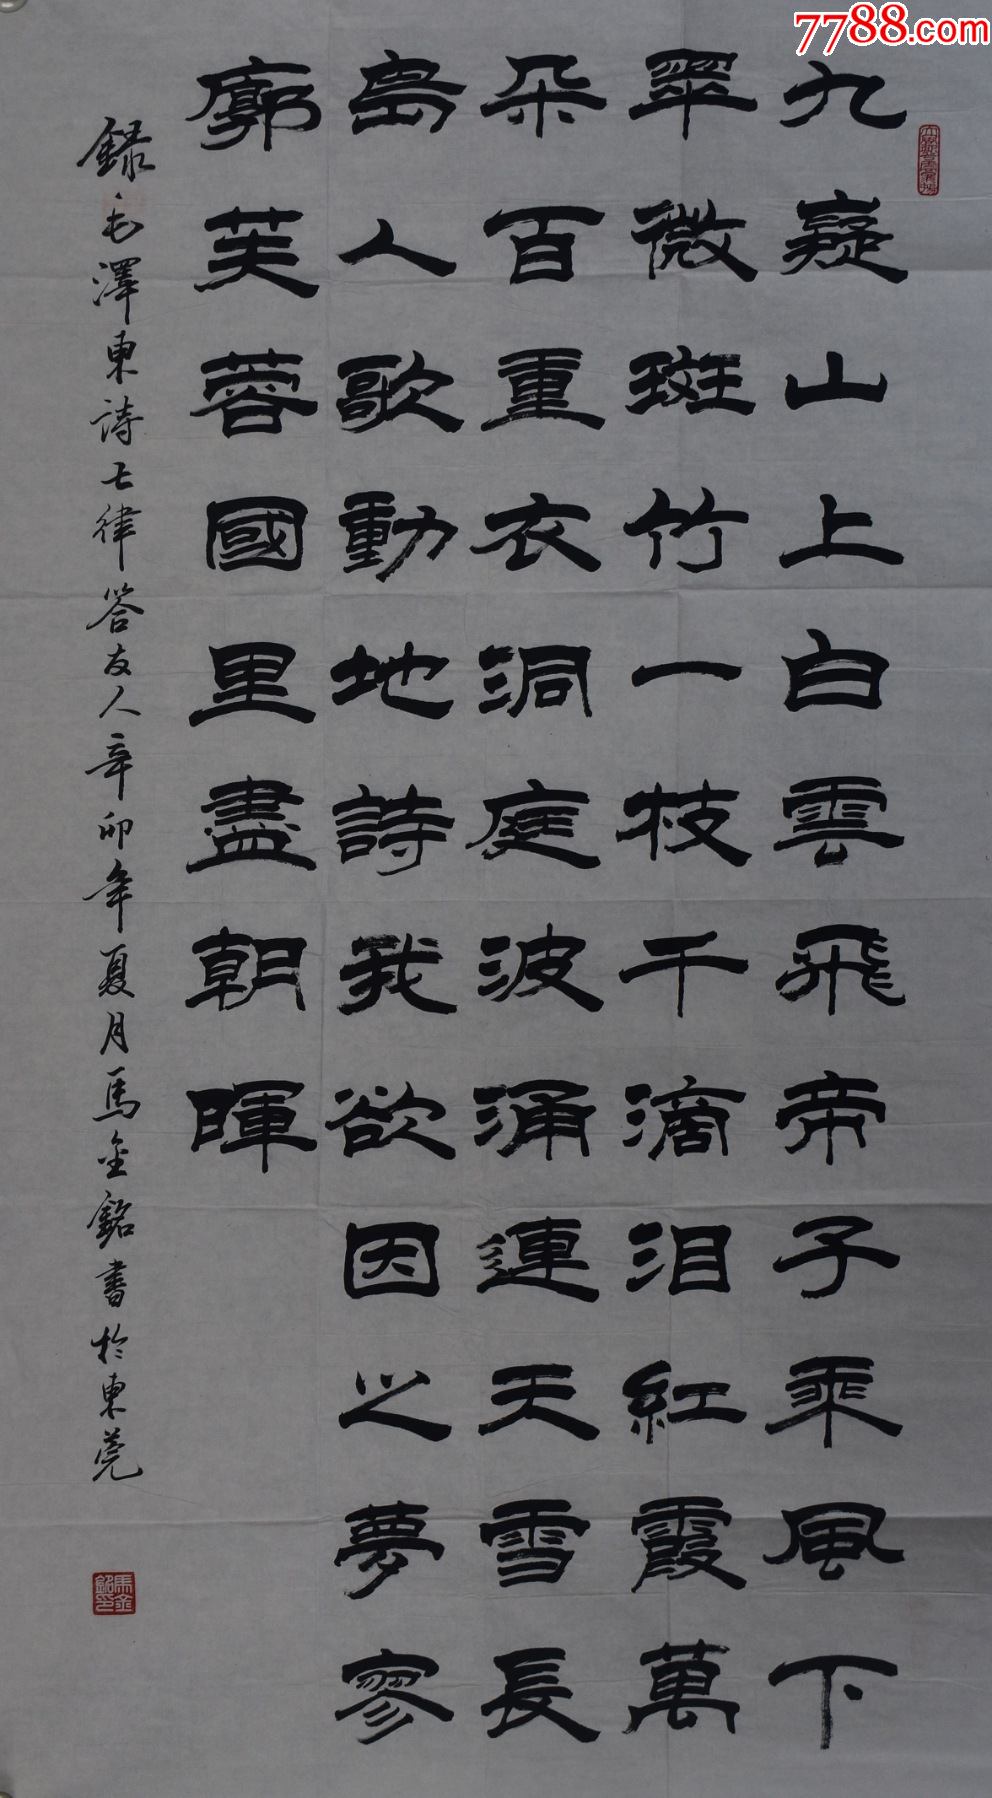 7788.com
九嶷山上白雲飛帝子乘風下
翠微斑竹一枝千滴泪紅霞萬
朵百重衣洞庭波涌連天雪長
島人歌動地詩我欲因之夢寥
廓芙蓉國里盡朝暉
錄毛澤東詩七律答友人辛卯年夏月馬金銘書於東莞
馬金銘印